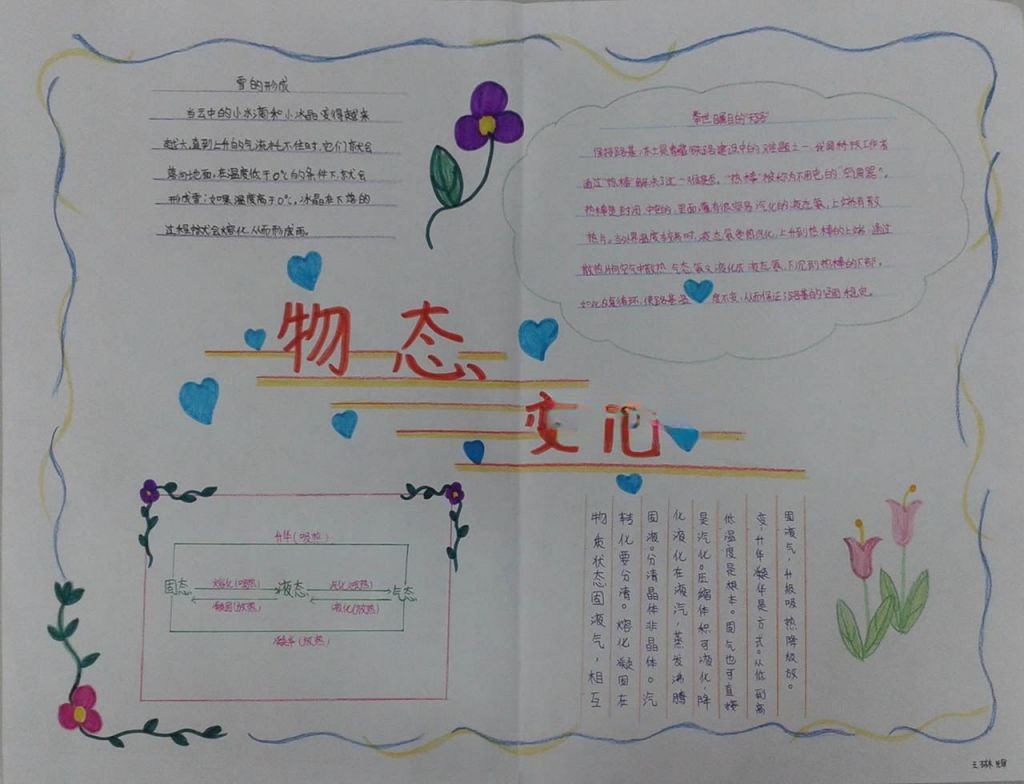 雪的形成
当云中的小水滴和小冰晶变得越来
越大,直到上升的气流托不住时,它们就会
落向地面,在温度低于0℃的条件下,就会
形成雪;如果温度高于0℃,冰晶在下落的
过程就会熔化,从而形成雨。
举世瞩目的"天路"
保持路基、冻土是青藏铁路建设中的难题之一,我国科技工作者
通过"热棒"解决了这一难题。"热棒"被称为不用电的"空调器"。
热棒是封闭中空的,里面灌有很容易汽化的液态氨,上端有散
热片。当外界温度较高时,液态氨受热汽化,上升到热棒的上端,通过
散热片向空气中散热,气态氨又液化成液态氨,下沉到热棒的下部,
如此往复循环,使路基温度不变,从而保证了路基的坚固稳定。
物态
变化
升华(吸热)
固态 熔化(吸热) 液态 汽化(吸热) 气态
凝固(放热) 液化(放热)
凝华(放热)
物质状态固液气,相互
转化要分清。熔化凝固在
固液。分清晶体非晶体。汽
化液化在液汽,蒸发沸腾
是汽化。压缩体积可液化,降
低温度是根本。固气也可直接
变,升华凝华是方式。从低到高
固液气,升级吸热降级放。